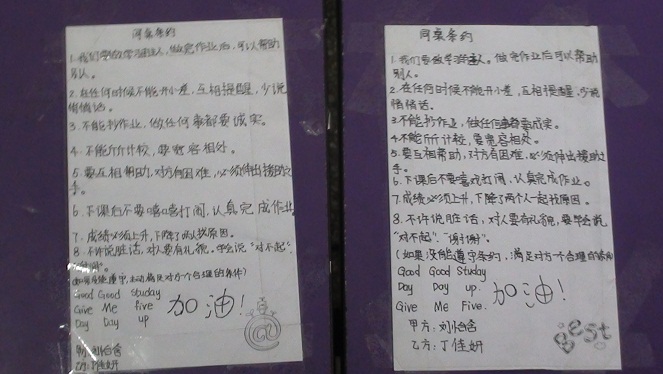 同桌条约
1.我们要做学习主人,做完作业后,可以帮助
别人。
2.在任何时候不能开小差,互相提醒,少说
悄悄话。
3.不能抄作业,做任何事都要诚实。
4.不能斤斤计较,要宽容相处。
5.要互相帮助,对方有困难,必须伸出援助之
手。
6.下课后不要嘻嘻打闹,认真完成作业
7.成绩必须上升,下降了两人找原因。
8.不许说脏话,对人要有礼貌,学会说"对不起"
"谢谢"。
(如果没能遵守,主动满足对方个合理的条件)
Good Good Studay
Give Me five
Day Day up
加油!
甲方:刘怡含
乙方:丁佳妍
同桌条约
1.我们要做学习主人。做完作业后可以帮助
别人。
2.在任何时候不能开小差,互相提醒,少说
悄悄话。
3.不能抄作业,做任何事都要诚实。
4.不能斤斤计较,要宽容相处。
5.要互相帮助,对方有困难,必须伸出援助之手。
6.下课后不要嘻戏打闹,认真完成作业。
7.成绩必须上升,下降了两个人一起找原因。
8.不许说脏话,对人要有礼貌,要学会说
"对不起"."谢谢"。
(如果没能遵守条约,满足对方一个合理的
Good Good Studay
Day Day up.
Give Me Five.
加油!
甲方:刘怡含
乙方:丁佳妍
Best